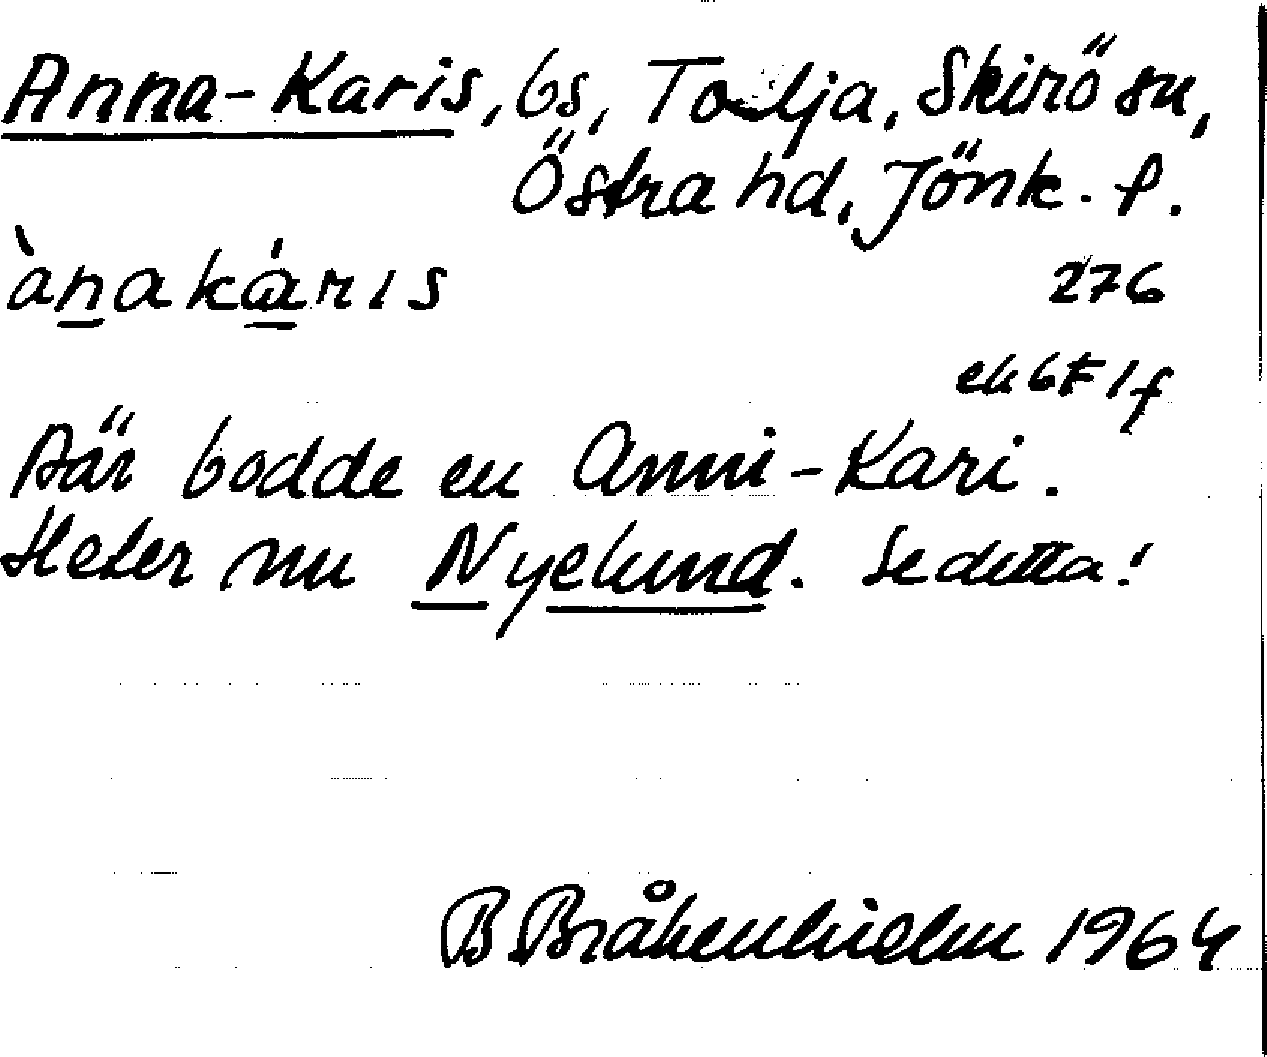 Anna-Karis, bs, Tolja, Skirö sn,
Östra hd, Jönk. l.
ànakáris
276
ek 6F 1f
Där bodde en Anni-Kari.
Heter nu Nyelund. Se detta!
B Bråkenhielm 1964